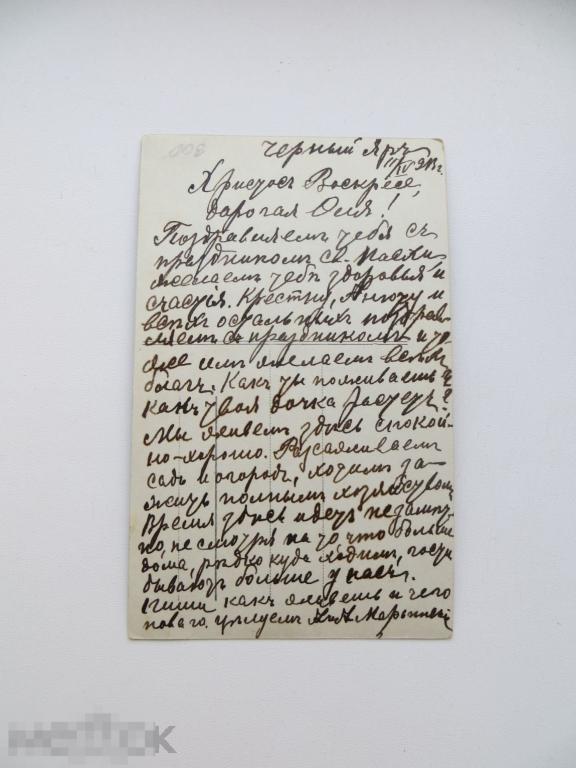 Черный Яръ
11/IV 23 г.
Христосъ Воскресе,
дорогая Оля!
Поздравляемъ тебя съ
праздникомъ св. Пасхи
желаемъ тебѣ здоровья и
счастія. Крестну, Анюту и
всѣхъ остальныхъ поздрав-
ляемъ съ праздникомъ и то
же имъ желаемъ всѣхъ
благъ. Какъ ты поживаешь и
какъ твоя дочка растетъ?
Мы живемъ здѣсь спокой-
но-хорошо. Разсаживаемъ
садъ и огородъ, ходимъ за-
жить полнымъ хозяйствомъ
Время здѣсь идетъ незамѣт-
но, не смотря на то, что больше
дома, рѣдко куда ходимъ, гости
бываютъ больше у насъ.
Пиши какъ живешь и чего
новаго. Цѣлуемъ
мешок